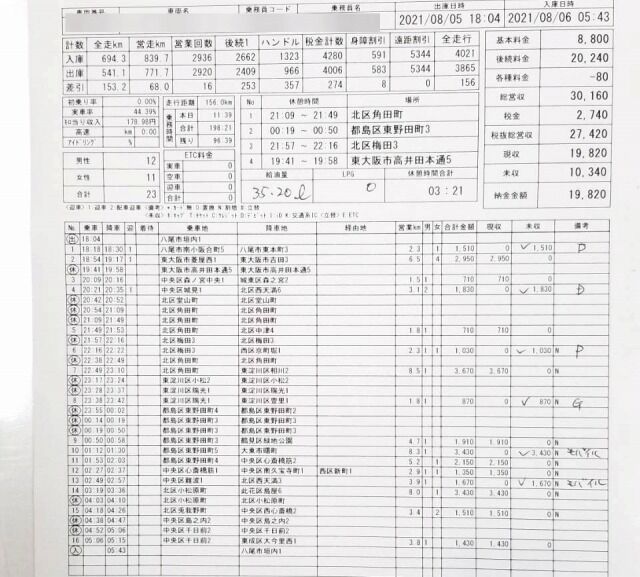 車両番号 車両名 乗務員コード 乗務員名 出庫日時 入庫日時
2021/08/05 18:04 2021/08/06 05:43
計数 全走km 営走km 営業回数 後続1 ハンドル 税金計数 身障割引 遠距割引 全走行
入庫 694.3 839.7 2936 2662 1323 4280 591 5344 4021
出庫 541.1 771.7 2920 2409 966 4006 583 5344 3865
差引 153.2 68.0 16 253 357 274 8 0 156
基本料金 8,800
後続料金 20,240
各種料金 -80
総営収 30,160
税金 2,740
税抜総営収 27,420
現収 19,820
未収 10,340
納金金額 19,820
初乗り率 0.00%
実車率 44.39%
キロ当り収入 178.98円
高速 km 0.00
アイドリング %
走行距離 156.0km
乗務時間 本日 11:39
合計 198:21
残り 96:39
No 休憩時間 場所
1 21:09 ~ 21:49 北区角田町
2 00:19 ~ 00:50 都島区東野田町3
3 21:57 ~ 22:16 北区梅田3
4 19:41 ~ 19:58 東大阪市高井田本通5
男性 12
女性 11
合計 23
ETC料金
実車 0
空車 0
迎車 0
合計 0
給油量 LPG 休憩時間合計
35.20ℓ 0 03:21
No. 乗車 降車 迎 着待 乗車地 降車地 経由地 営業km 男 女 合計金額 現収 未収 備考
出 18:04 八尾市垣内1
1 18:18 18:30 1 八尾市南小阪合町5 八尾市東本町3 2.3 1 1,510 0 ✓1,510 D
2 18:54 19:17 1 東大阪市菱屋西1 東大阪市吉田3 6.5 4 2,950 2,950 0
休 19:41 19:58 東大阪市高井田本通5 東大阪市高井田本通5
3 20:09 20:16 中央区森ノ宮中央1 城東区森之宮2 1.5 1 710 710 0
4 20:21 20:35 1 中央区城見1 北区西天満6 3.1 2 1,830 0 ✓1,830 D
休 20:42 20:52 北区堂山町 北区堂山町
休 20:54 21:09 北区角田町 北区角田町
休 21:09 21:49 北区角田町 北区角田町
5 21:49 21:53 北区角田町 北区中津4 1.8 1 710 710 0
休 21:57 22:16 北区梅田3 北区梅田3
6 22:16 22:22 北区梅田3 西区京町堀1 2.3 1 1 1,030 0 ✓1,030 N P
休 22:38 22:49 北区角田町 北区角田町
7 22:49 23:10 北区角田町 東淀川区相川2 8.5 1 3,670 3,670 0 N
休 23:17 23:24 東淀川区小松2 東淀川区小松2
休 23:28 23:37 東淀川区瑞光1 東淀川区瑞光1
8 23:38 23:42 東淀川区瑞光1 東淀川区豊里1 1.8 1 870 0 ✓870 N G
休 23:55 00:02 都島区東野田町4 都島区東野田町2
休 00:14 00:19 都島区東野田町3 都島区東野田町3
休 00:19 00:50 都島区東野田町3 都島区東野田町3
9 00:50 00:58 都島区東野田町3 鶴見区緑地公園 4.7 1 1,910 1,910 0 N
10 01:12 01:30 都島区東野田町4 大東市曙町 8.3 1 3,430 0 ✓3,430 N モバイル
11 01:53 02:03 都島区東野田町4 中央区心斎橋筋2 5.2 1 2,150 2,150 0 N
12 02:27 02:37 中央区心斎橋筋1 中央区南久宝寺町1 西区新町1 2.9 1 1 1,350 1,350 0 N
13 02:49 02:57 中央区難波1 北区西天満3 3.9 1 1,670 0 ✓1,670 N モバイル
14 03:19 03:36 北区小松原町 此花区島屋6 8.0 1 3,430 3,430 0 N
休 04:03 04:10 北区小松原町 北区小松原町
15 04:18 04:26 北区兎我野町 中央区西心斎橋2 3.4 2 1,510 1,510 0 N
休 04:38 04:47 中央区島之内2 中央区島之内2
休 04:52 05:06 中央区千日前2 中央区千日前2
16 05:06 05:15 中央区千日前2 東成区大今里西1 3.8 1 1,430 1,430 0 N
入 05:43 八尾市垣内1